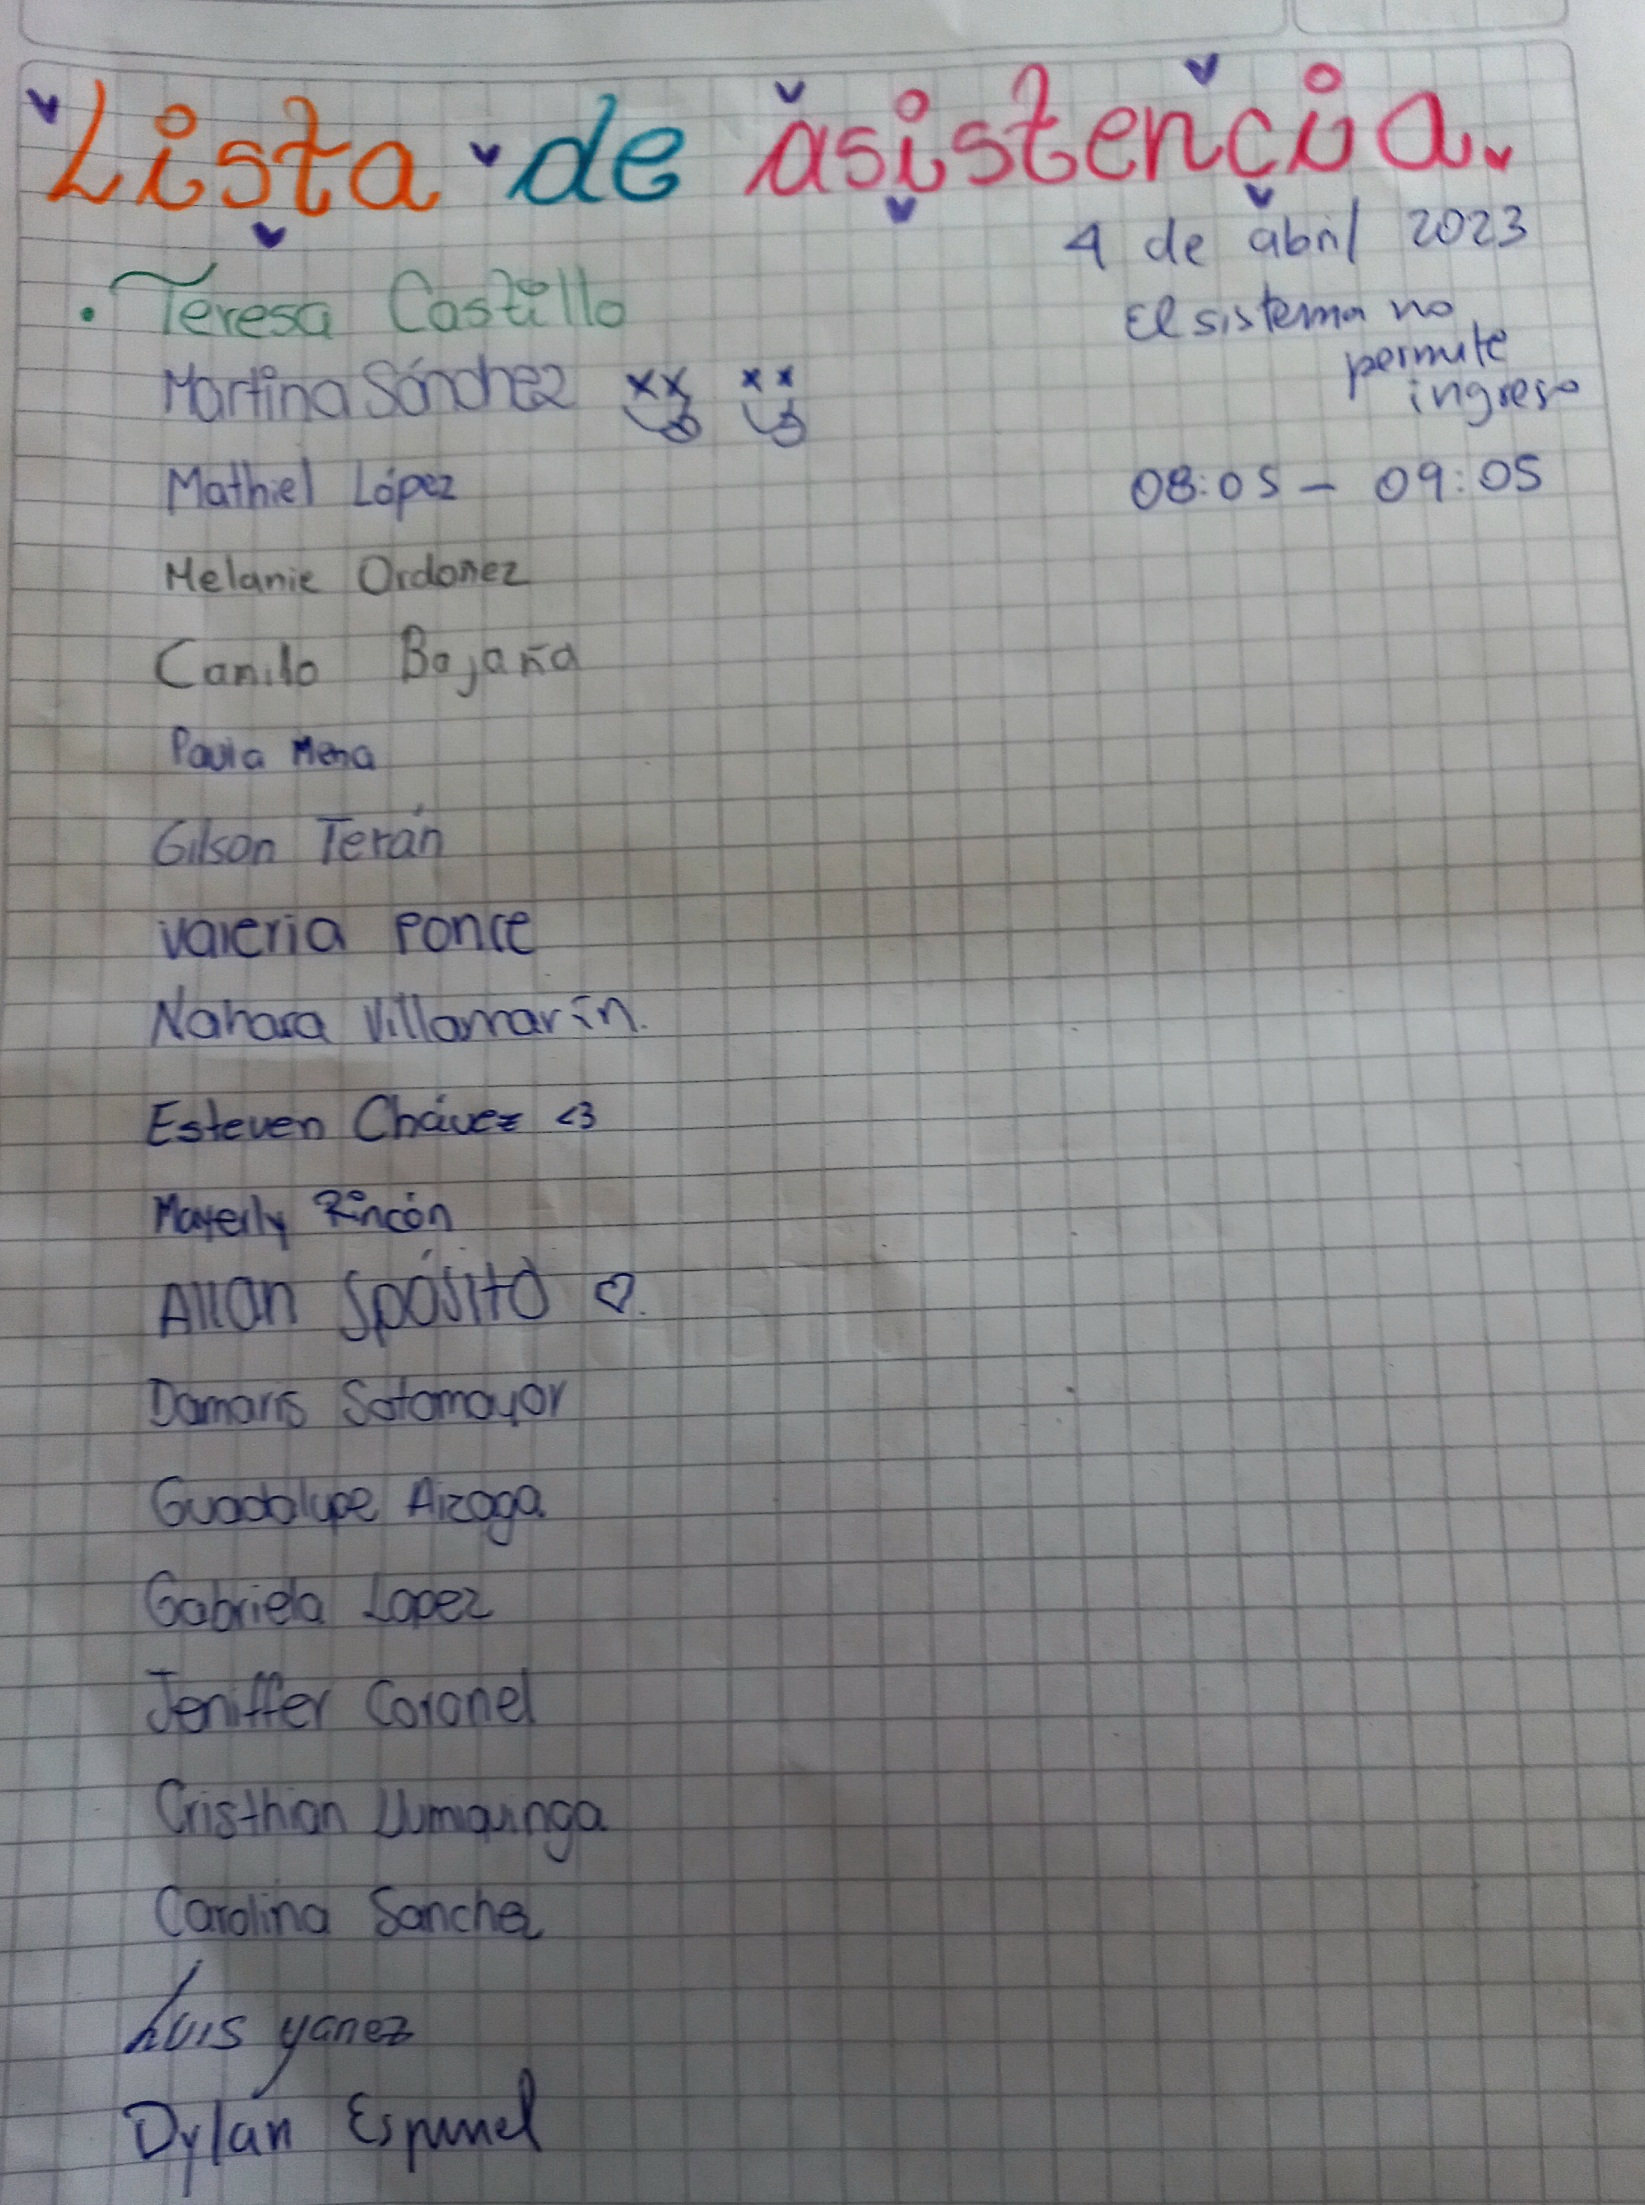 Lista de asistencia.
4 de abril 2023
Teresa Castillo
El sistema no
permite
ingreso
Martina Sánchez
Mathiel López
08:05 - 09:05
Melanie Ordonez
Camilo Bajaña
Paula Mena
Gilson Terán
Valeria Ponce
Nahara Villamarín.
Esteven Chávez <3
Mayerly Rincón
Allan Spósito ♡.
Damaris Sotomayor
Guadalupe Aizaga
Gabriela Lopez
Jeniffer Coronel
Cristhian Llumiquinga
Carolina Sanchez
Luis yanez
Dylan Espinel